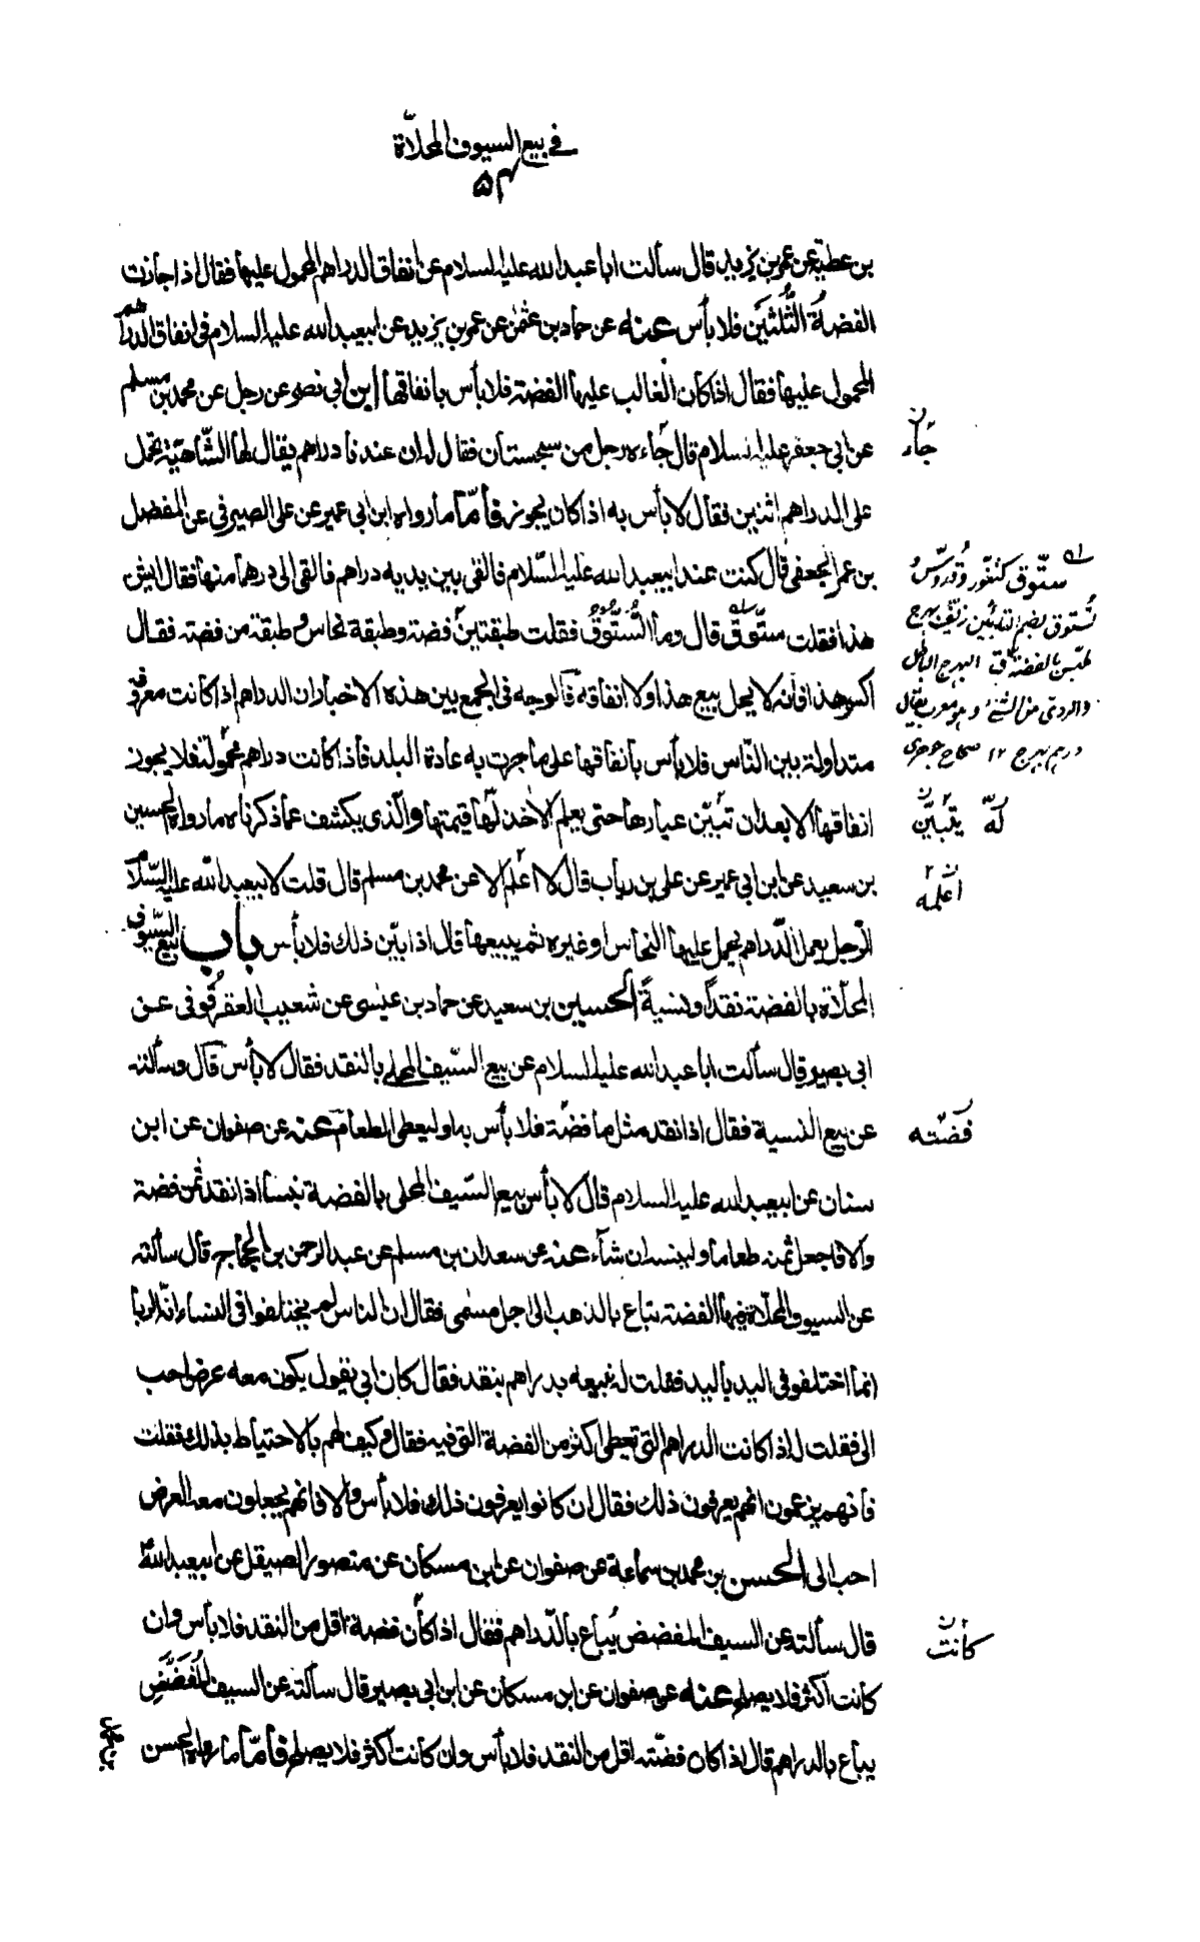 في بيع السيوف المحلاّة
٥٣
بن عطية عن عمر بن يزيد قال سألت ابا عبد الله عليه السلام عن انفاق الدراهم المحمول عليها فقال اذا جازت
الفضة الثُّلثَين فلا بأس عنه عن حماد بن عثمن عن عمر بن يزيد عن ابيعبد الله عليه السلام في انفاق الدراهم
المحمول عليها فقال اذا كان الغالب عليها الفضة فلا بأس بانفاقها ابن ابي نصر عن رجل عن محمد بن مسلم
عن ابي جعفر عليه السلام قال جاءه رجل من سجستان فقال له ان عندنا دراهم يقال لها الشّاهيّة يحمل
على الدراهم اثنين فقال لا بأس به اذا كان يجوز فأمّا ما رواه ابن ابي عمير عن على الصيرفي عن المفضل
بن عمر الجعفي قال كنت عند ابيعبد الله عليه السّلام فالقى بين يديه دراهم فالقى الى درهما منها فقال ايش
هذا فقلت ستّوق قال وما السُّتّوُق فقلت طبقتين فضة وطبقة نحاس وطبقة من فضة فقال
اكسر هذا فانه لا يحل بيع هذا ولا انفاقه فالوجه في الجمع بين هذه الاخبار ان الدراهم اذا كانت معروفة
متداولة بين النّاس فلا بأس بانفاقها على ما جرت به عادة البلد فأذا كانت دراهم مجهولة فلا يجوز
انفاقها الا بعد ان تبيّن عيارها حتى يعلم الاخذ لها قيمتها والّذى يكشف عما ذكرناه ما رواه الحسين
بن سعيد عن ابن ابي عمير عن على بن رياب قال لا اعلم الا عن محمد بن مسلم قال قلت لابيعبد الله عليه السّلام
الرّجل يعمل الدّراهم يحمل عليها النحاس او غيره ثم يبيعها قال اذا بيّن ذلك فلا بأس باب بيع السّيوف
المحلّاة بالفضة نقداً ونسيةً الحسين بن سعيد عن حماد بن عيسى عن شعيب العقرقوفى عن
ابي بصير قال سألت ابا عبد الله عليه السلام عن بيع السّيف المحلى بالنقد فقال لا بأس قال وسألته
عن بيع النسية فقال اذا نقد مثل ما فضّة فلا بأس به او ليعطى الطعام عنه عن صفوان عن ابن
سنان عن ابيعبد الله عليه السلام قال لا بأس ببيع السّيف المحلى بالفضة بنسأ اذا نقد ثمن فضة
والا فاجعل ثمنه طعاما ولينسه ان شآء عنه عن سعدان بن مسلم عن عبد الرحمن بن الحجاج قال سألته
عن السيوف المحلاّة فيها الفضة تباع بالذهب الى اجل مسمى فقال ان الناس لم يختلفوا في النساء انّه الربا
انما اختلفوفى اليد باليد فقلت له نبيعه بدراهم بنقد فقال كان ابي يقول يكون معه عرض احب
الى فقلت له اذا كانت الدراهم التى تعطى اكثر من الفضة التى فيه فقال وكيف لهم بالاحتياط بذلك فقلت
فانهم يزعمون انهم يعرفون ذلك فقال ان كانوا يعرفون ذلك فلا بأس والا فانهم يجعلون معه العرض
احب الى الحسن بن محمد بن سماعة عن صفوان عن ابن مسكان عن منصور الصيقل عن ابيعبد اللّه
قال سألته عن السيف المفضض يُباع بالدّراهم فقال اذا كان فضة اقل من النقد فلا بأس وان
كانت اكثر فلا يصلح عنه عن صفوان عن ابن مسكان عن ابن ابي بصير قال سألته عن السيف المُفَضَّضِ
يباع بالدراهم قال اذا كان فضّته اقل من النقد فلا بأس وان كانت اكثر فلا يصلح فأمّا ما رواه الحسن
جاز
ستّوق كتنّور وقدّوس و
تُستوق بضم التائين زيف بهرج
ملبّس بالفضة ق البهرج الباطل
والردى من الشئ وهو معرب يقال
درهم بهرج ١٢ صحاح جوهرى
له
يتبيّن
اعلمه
فضّته
كانت